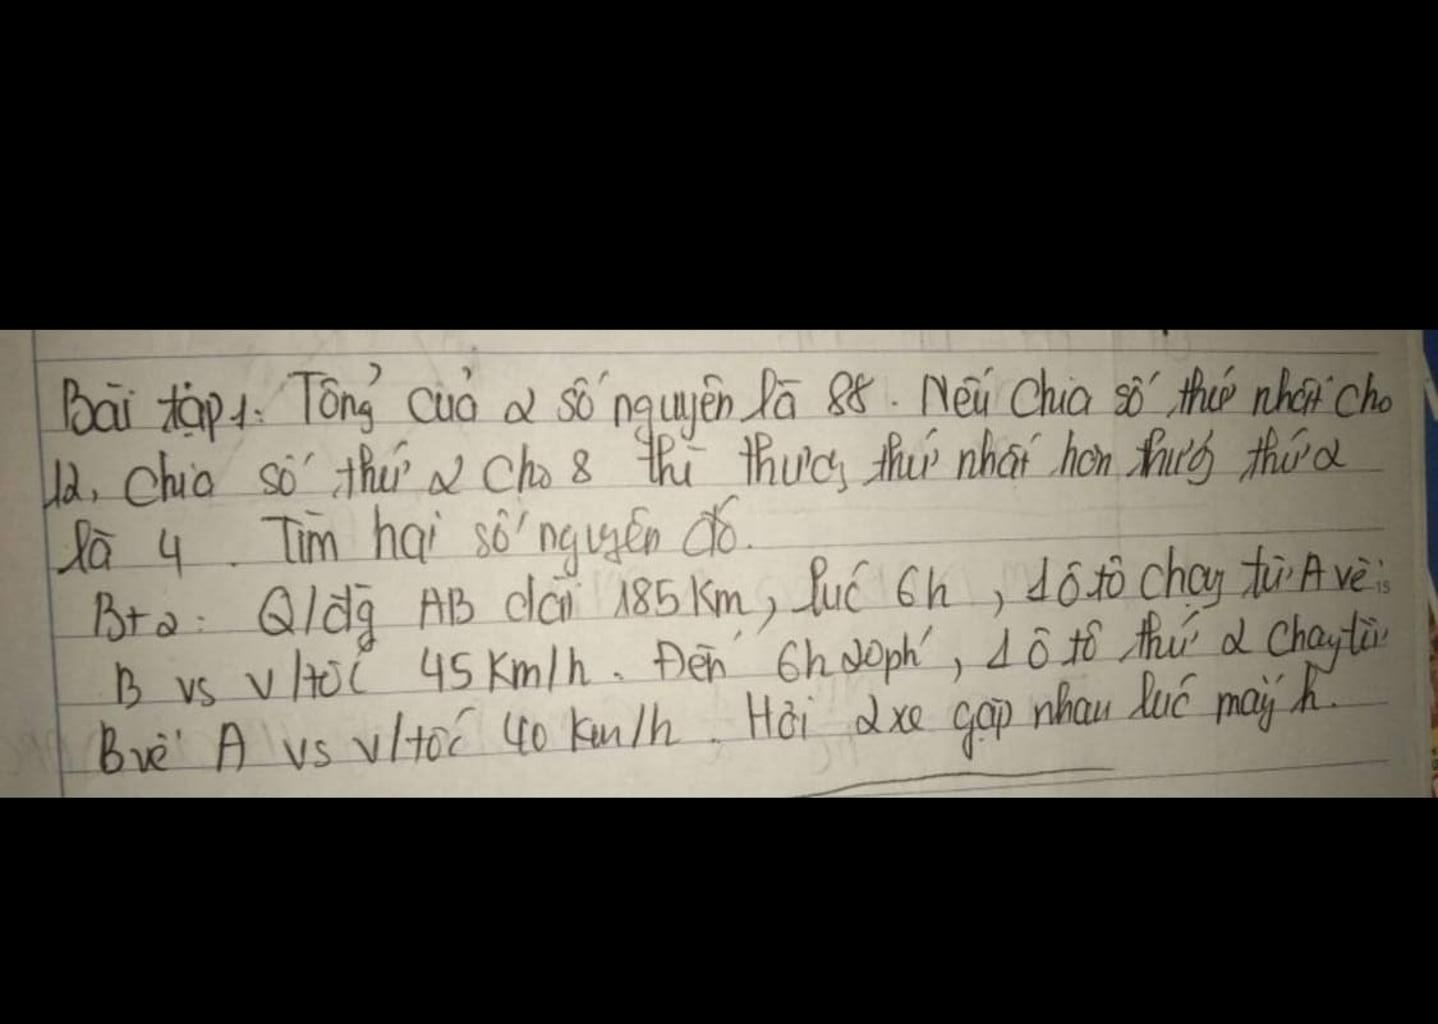 Bài tập 1: Tổng của 2 số nguyên là 88. Nếu chia số thứ nhất cho
12, chia số thứ 2 cho 8 thì thương thứ nhất hơn thương thứ 2
là 4. Tìm hai số nguyên đó.
Bt2: Q/đg AB dài 185 Km, lúc 6h, 1 ô tô chạy từ A về
B vs v/tốc 45 Km/h. Đến 6h20ph', 1 ô tô thứ 2 chạy từ
B về A vs v/tốc 40 km/h. Hỏi 2 xe gặp nhau lúc mấy h.